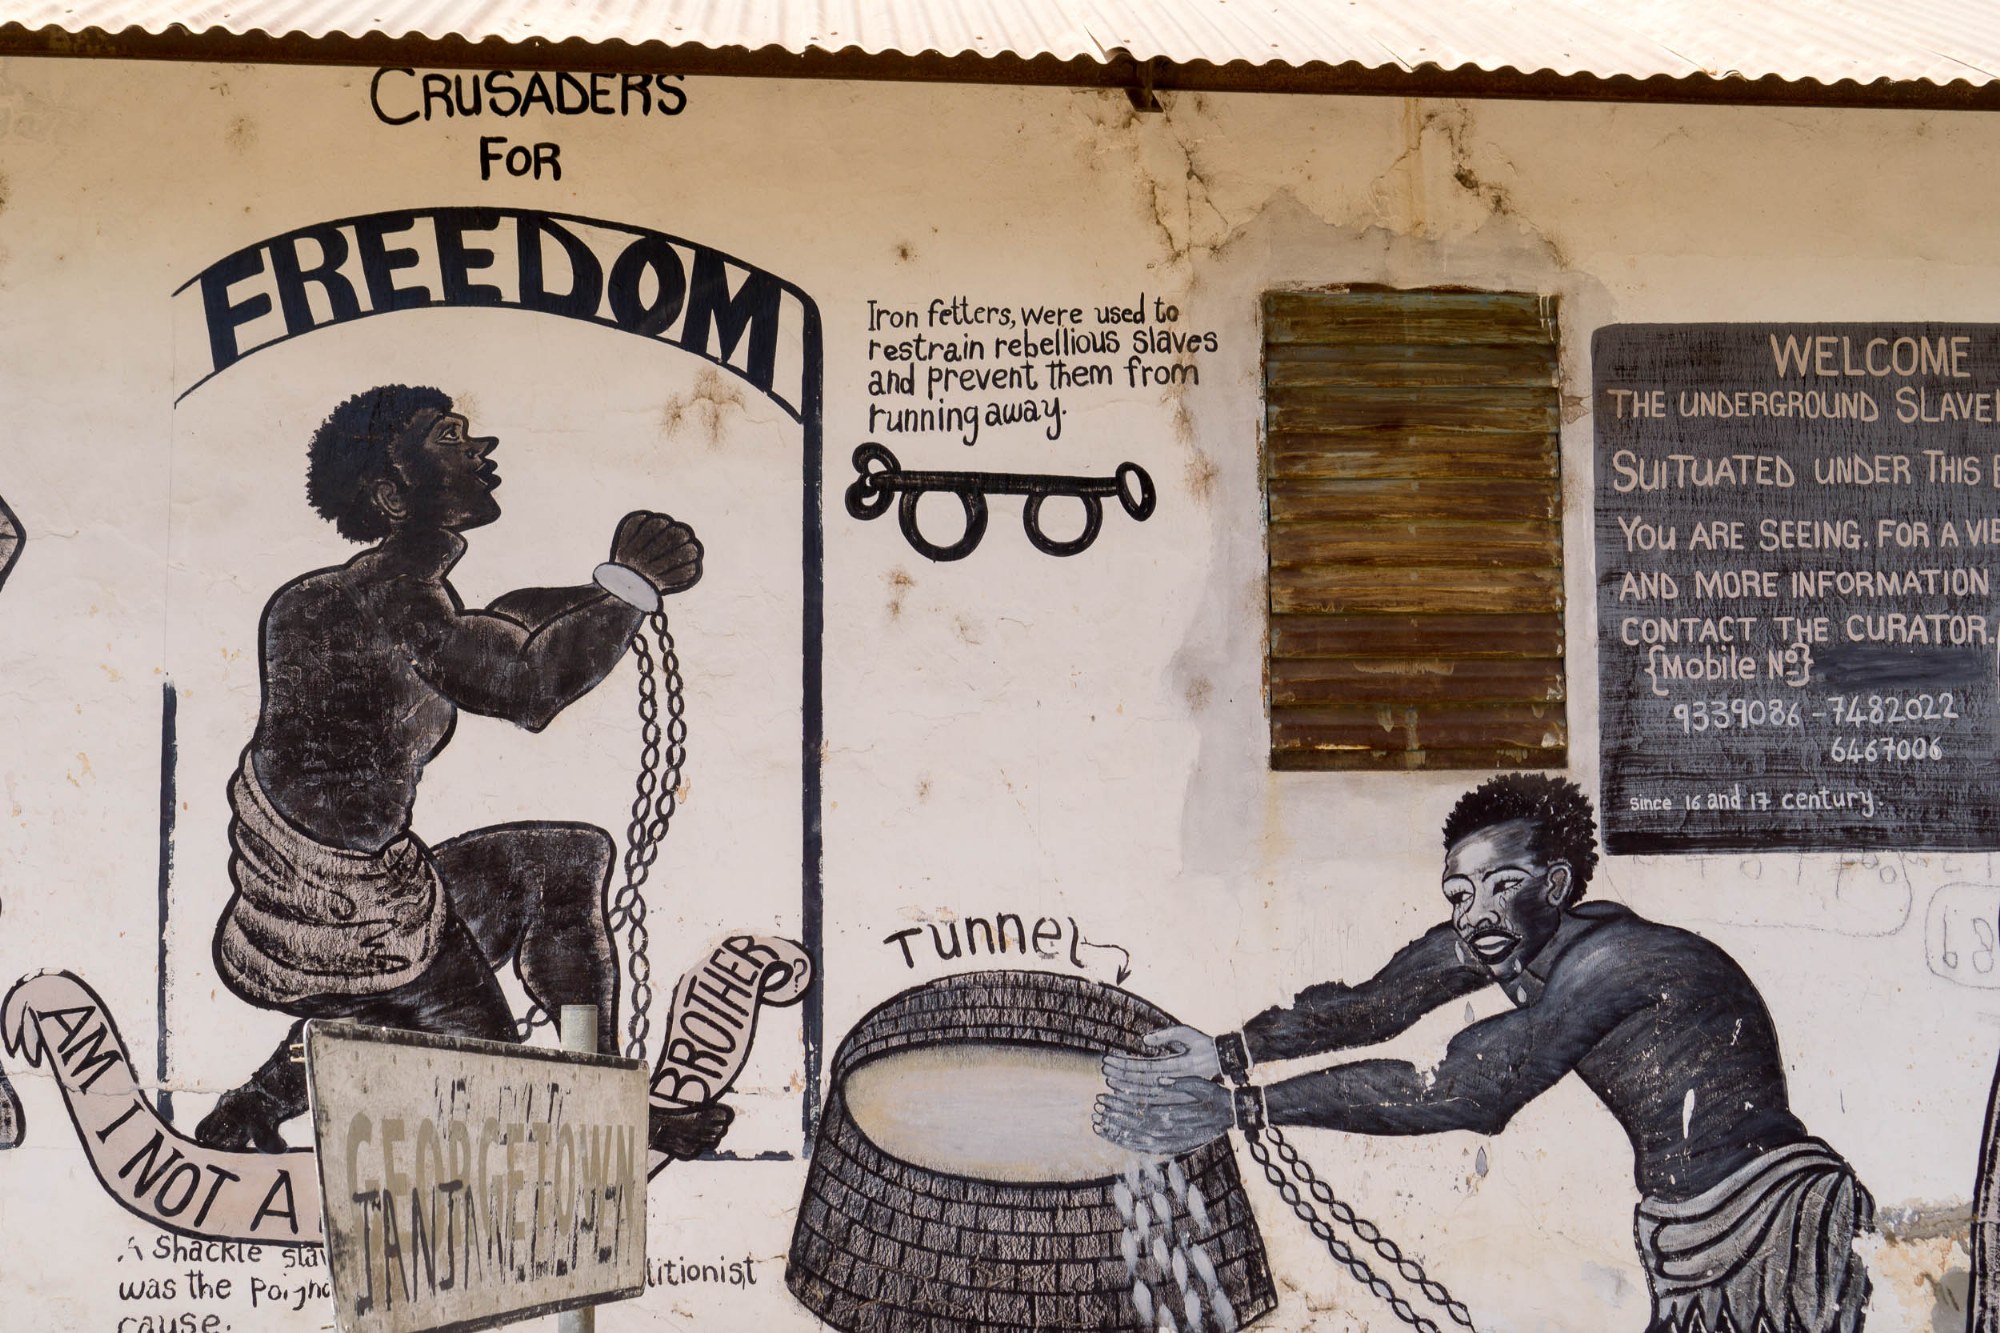 CRUSADERS
FOR
FREEDOM
Iron fetters, were used to
restrain rebellious slaves
and prevent them from
running away.
WELCOME
THE UNDERGROUND SLAVE
SUITUATED UNDER THIS
YOU ARE SEEING. FOR A VIE
AND MORE INFORMATION
CONTACT THE CURATOR.
{Mobile No}
9339086 - 7482022
6467006
Since 16 and 17 century.
Tunnel
AM I NOT A
BROTHER ?
GEORGETOWN
A Shackle
was the
litionist
cause.